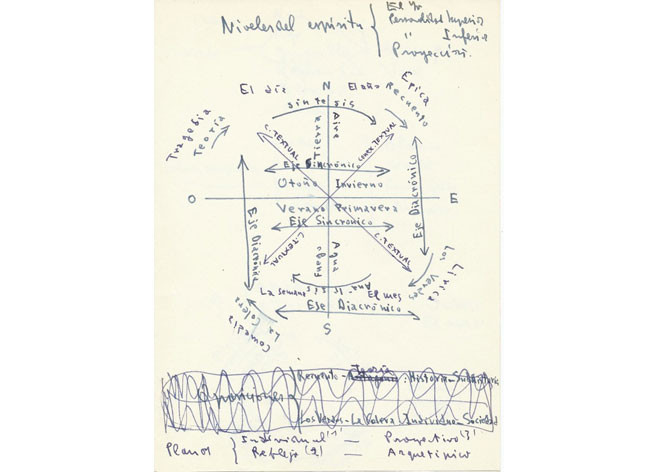 Niveles del espíritu { El Yo
Personalidad Superior
" Inferior
Proyección.
El día N El año
Epica
Recuento
Síntesis
Tragedia
Teoría
C. TEXTUAL
Tierra Aire
CONTEXTUAL
Eje Sincrónico
Otoño Invierno
O E
Verano Primavera
Eje Sincrónico
Eje Diacrónico
Eje Diacrónico
C. TEXTUAL
C. TEXTUAL
Fuego Agua
Los Verdes
Lírica
La semana
El mes
Eje Diacrónico
Comedia
La Colera
S
Oposiciones
Recuento - Teoría : Historia -
Los Verdes - La Colera : Individuo - Sociedad
Planos { Individual (1) — Proyectivo (3)
Reflejo (2) — Arquetípico